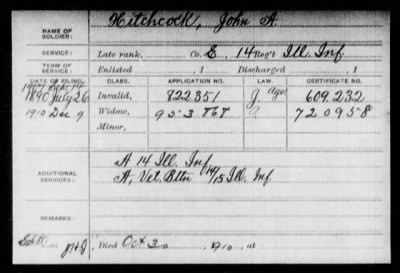 NAME OF SOLDIER: Hitchcock, John A.
SERVICE: Late rank, Co. E, 14 Reg't Ill. Inf.
TERM OF SERVICE: Enlisted , 1 Discharged , 1
DATE OF FILING. CLASS. APPLICATION NO. LAW. CERTIFICATE NO.
1890 July 26 Invalid, 822351 Age 609.232
1910 Dec 9 Widow, 953868 720958
Minor,
ADDITIONAL SERVICES: A 14 Ill. Inf.
A, Vet. Bttn 14/15 Ill. Inf.
REMARKS:
Died Oct 30, 1910, at